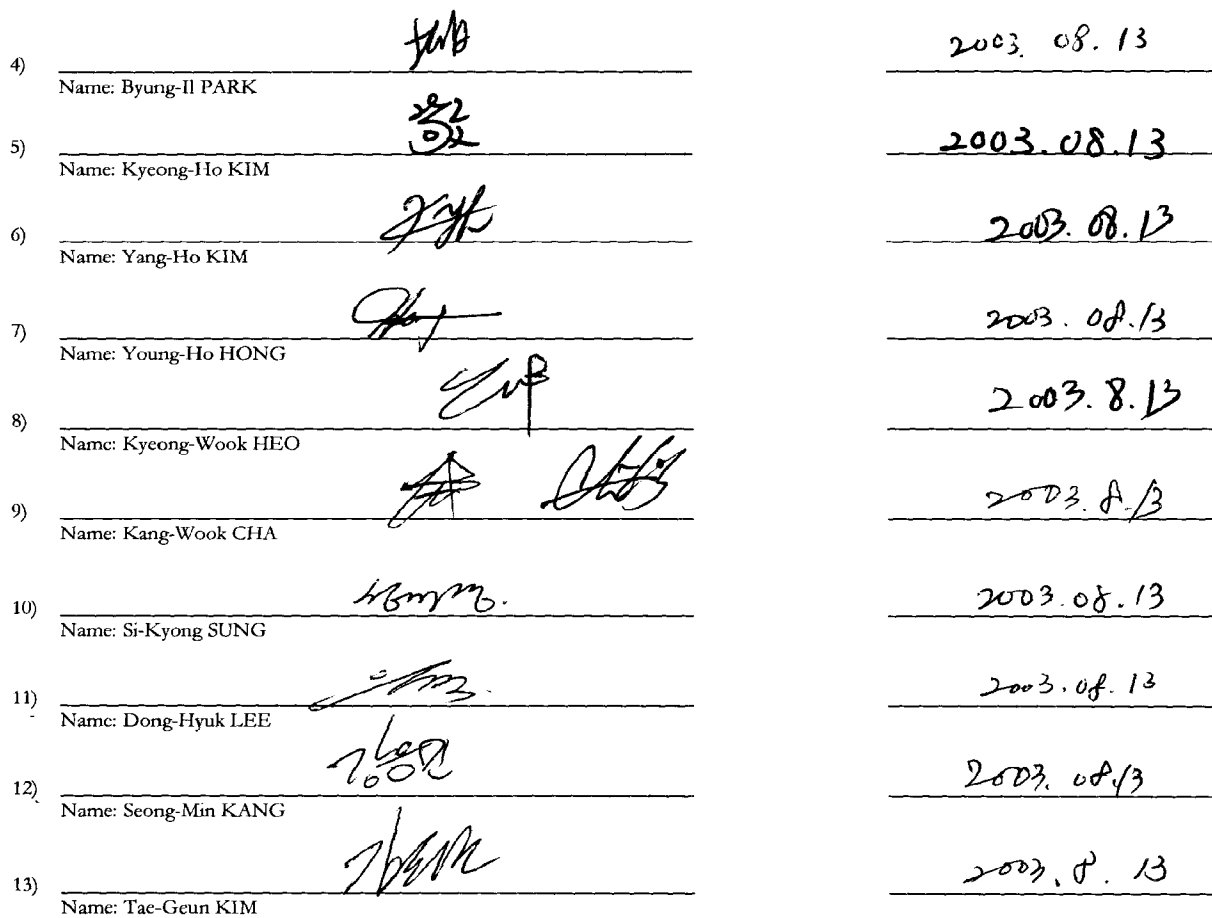 4) 2003. 08. 13
Name: Byung-Il PARK
5) 2003.08.13
Name: Kyeong-Ho KIM
6) 2003. 08. 13
Name: Yang-Ho KIM
7) 2003. 08. 13
Name: Young-Ho HONG
8) 2003. 8. 13
Name: Kyeong-Wook HEO
9) 2003. 8. 13
Name: Kang-Wook CHA
10) 2003. 08. 13
Name: Si-Kyong SUNG
11) 2003. 08. 13
Name: Dong-Hyuk LEE
12) 2003. 08. 13
Name: Seong-Min KANG
13) 2003. 8. 13
Name: Tae-Geun KIM